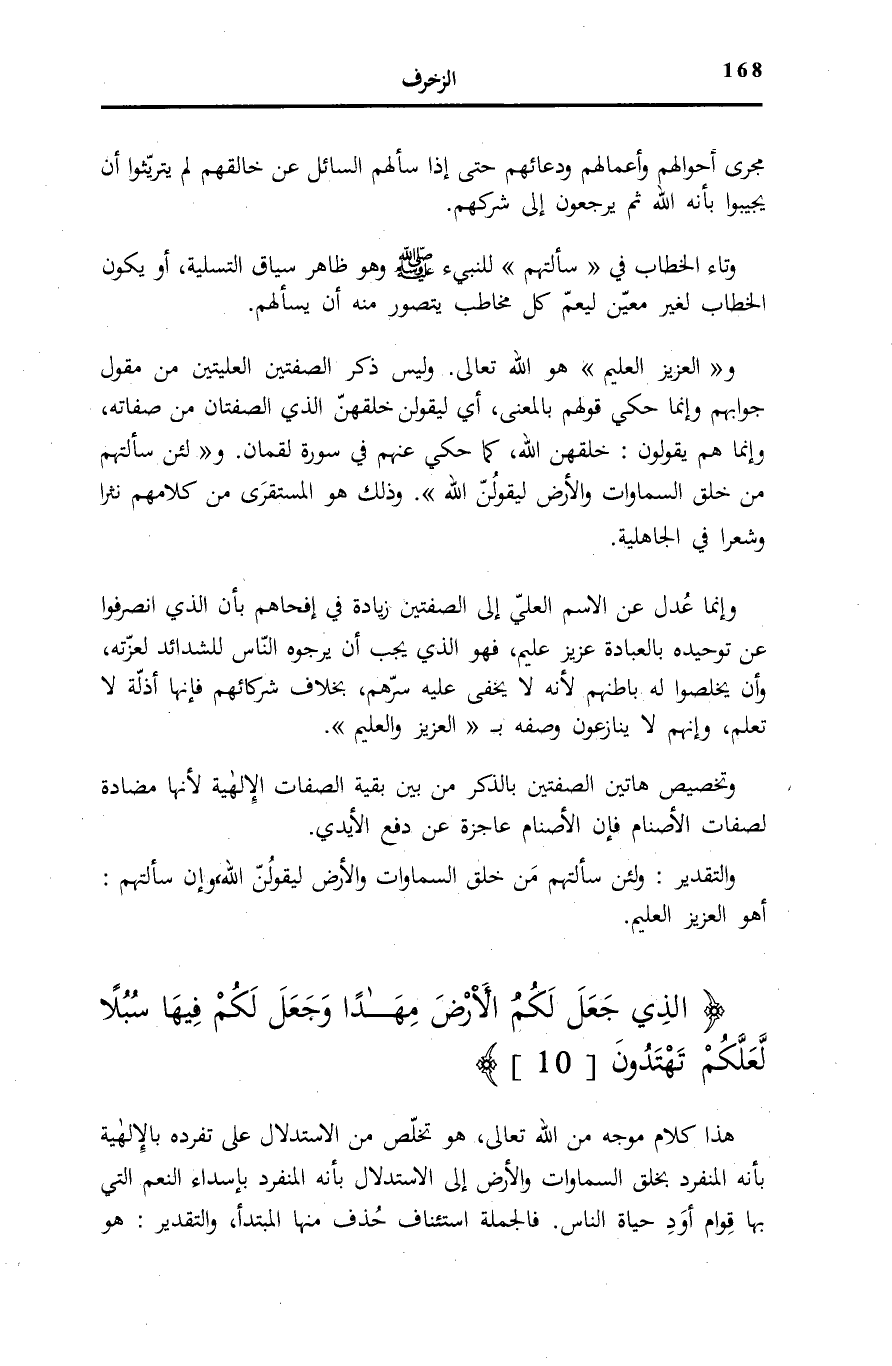 168
الزخرف
مجرى أحوالهم وأعمالهم ودعائهم حتى إذا سألهم السائل عن خالقهم لم يتريّثوا أن
يجيبوا بأنه الله ثم يرجعون إلى شركهم.
وتاء الخطاب في « سألتهم » للنبيء ﷺ وهو ظاهر سياق التسلية، أو يكون
الخطاب لغير معيّن ليعمّ كل مخاطب يتصور منه أن يسألهم.
و« العزيز العليم » هو الله تعالى. وليس ذكر الصفتين العليتين من مقول
جوابهم وإنما حكي قولهم بالمعنى، أي ليقولن خلقهنّ الذي الصفتان من صفاته،
وإنما هم يقولون : خلقهن الله، كما حكي عنهم في سورة لقمان. و« لئن سألتهم
من خلق السماوات والأرض ليقولُنّ الله ». وذلك هو المستقرَى من كلامهم نثرا
وشعرا في الجاهلية.
وإنما عُدل عن الاسم العليّ إلى الصفتين زيادة في إفحاهم بأن الذي انصرفوا
عن توحيده بالعبادة عزيز عليم، فهو الذي يجب أن يرجوه النّاس للشدائد لعزّته،
وأن يخلصوا له باطنهم لأنه لا يخفى عليه سرّهم، بخلاف شركائهم فإنها أذلّة لا
تعلم، وإنهم لا ينازعون وصفه بـ « العزيز والعليم ».
وتخصيص هاتين الصفتين بالذكر من بين بقية الصفات الإلٰهية لأنها مضادة
لصفات الأصنام فإن الأصنام عاجزة عن دفع الأيدي.
والتقدير : ولئن سألتهم مَن خلق السماوات والأرض ليقولُنّ الله، وإن سألتهم :
أهو العزيز العليم.
﴿ الذِي جَعَلَ لَكُمُ الَأْرْضَ مِهَـٰدًا وَجَعَلَ لَكُمْ فِيهَا سُبُلًا
لَّعَلَّكُمْ تَهْتَدُونَ [ 10 ] ﴾
هذا كلام موجه من الله تعالى، هو تخلّص من الاستدلال على تفرده بالإلٰهية
بأنه المنفرد بخلق السماوات والأرض إلى الاستدلال بأنه المنفرد بإسداء النعم التي
بها قِوام أوَدِ حياة الناس. فالجملة استئناف حُذف منها المبتدأ، والتقدير : هو